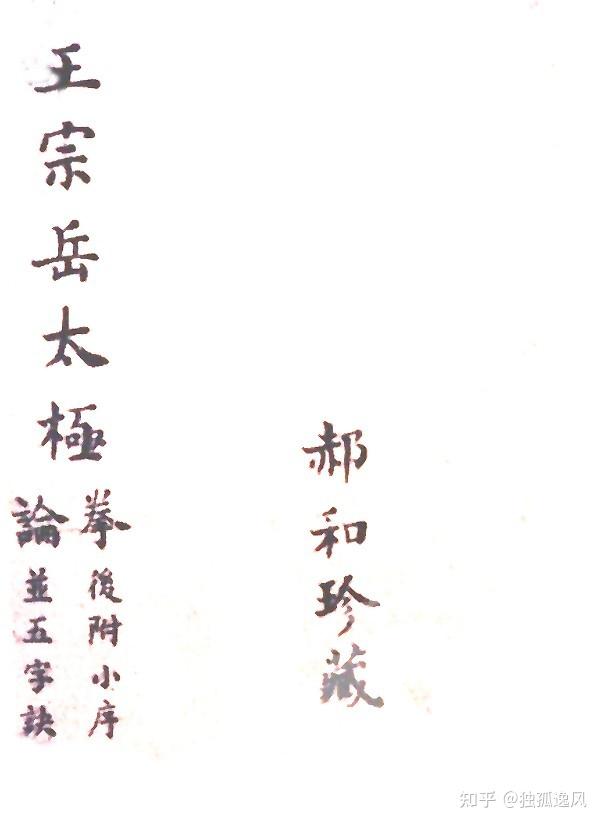 郝和珍藏
王宗岳太極拳論
後附小序
並五字訣
知乎 @独孤逸风